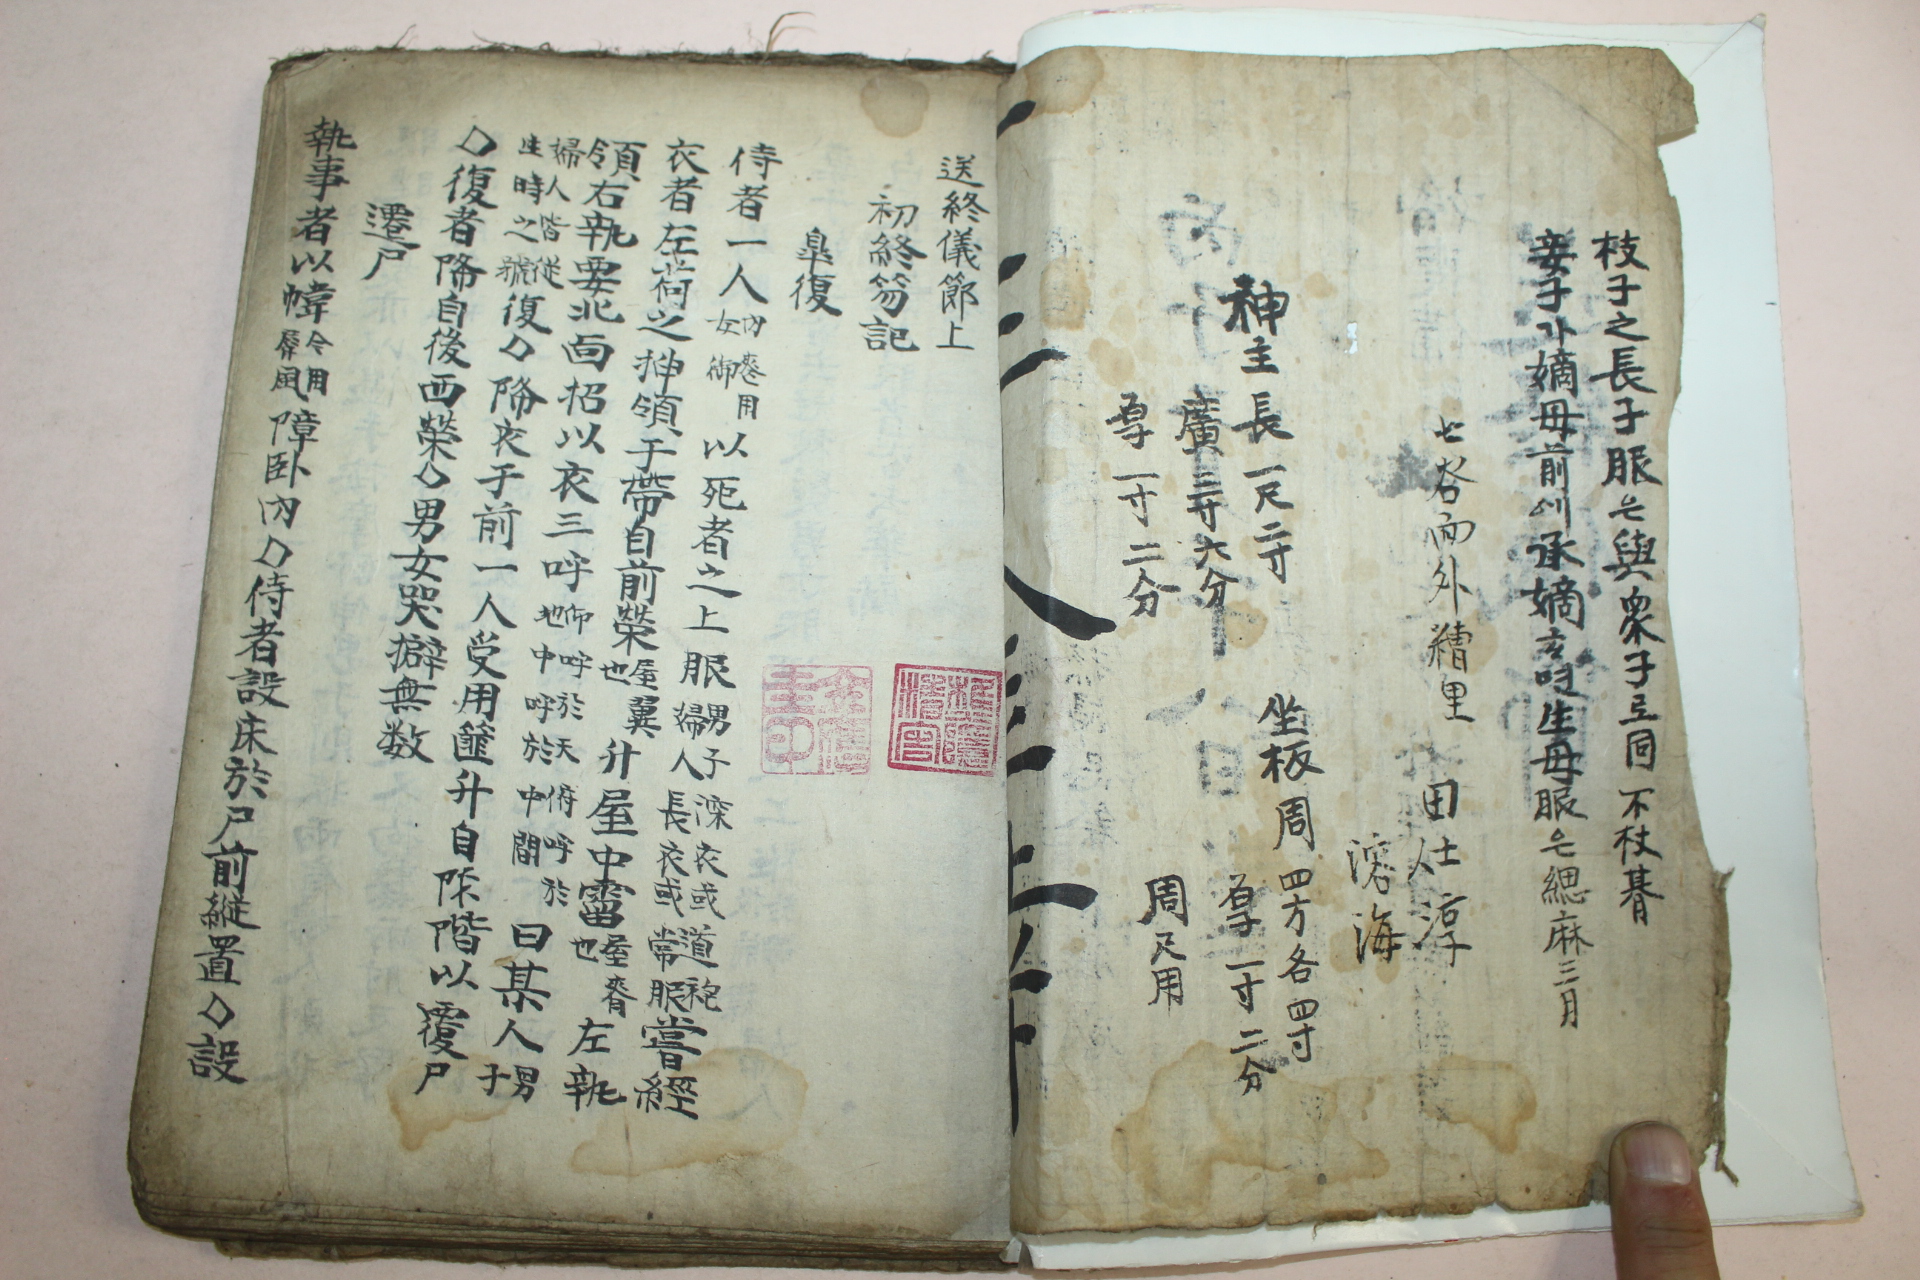 枝子之長子服ᄂᆞᆫ與衆子로同不杖朞
妾子가嫡母前이承嫡이生母服ᄂᆞᆫ緦麻三月
神主長一尺二寸
廣三寸六分
厚一寸二分
坐板周四方各四寸
厚一寸二分
周尺用
送終儀節上
初終笏記
皐復
侍者一人內喪用女御以死者之上服男子深衣或道袍婦人長衣或常服嘗經
衣者左荷之揷領于帶自前榮屋翼也升屋中霤屋脊也左執
領右執要北面招以衣三呼仰呼於天俯呼於地中呼於中間曰某人男子
婦人皆從生時之號復◇降衣于前一人受用篚升自阼階以覆尸
◇復者降自後西榮◇男女哭擗無数
遷尸
執事者以幃今用屛風障卧內◇侍者設床於尸前縱置◇設